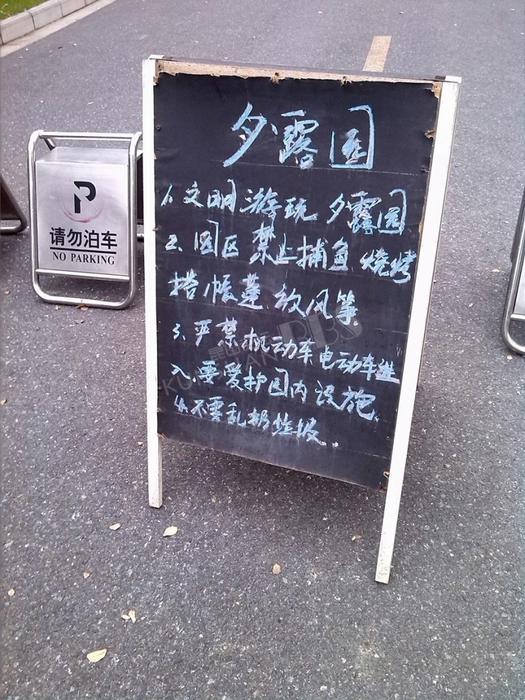 夕露园
1.文明游玩夕露园
2.园区禁止捕鱼烧烤
搭帐蓬放风筝
3.严禁机动车电动车进
入.要爱护园内设施.
4.不要乱扔垃圾.
P
请勿泊车
NO PARKING